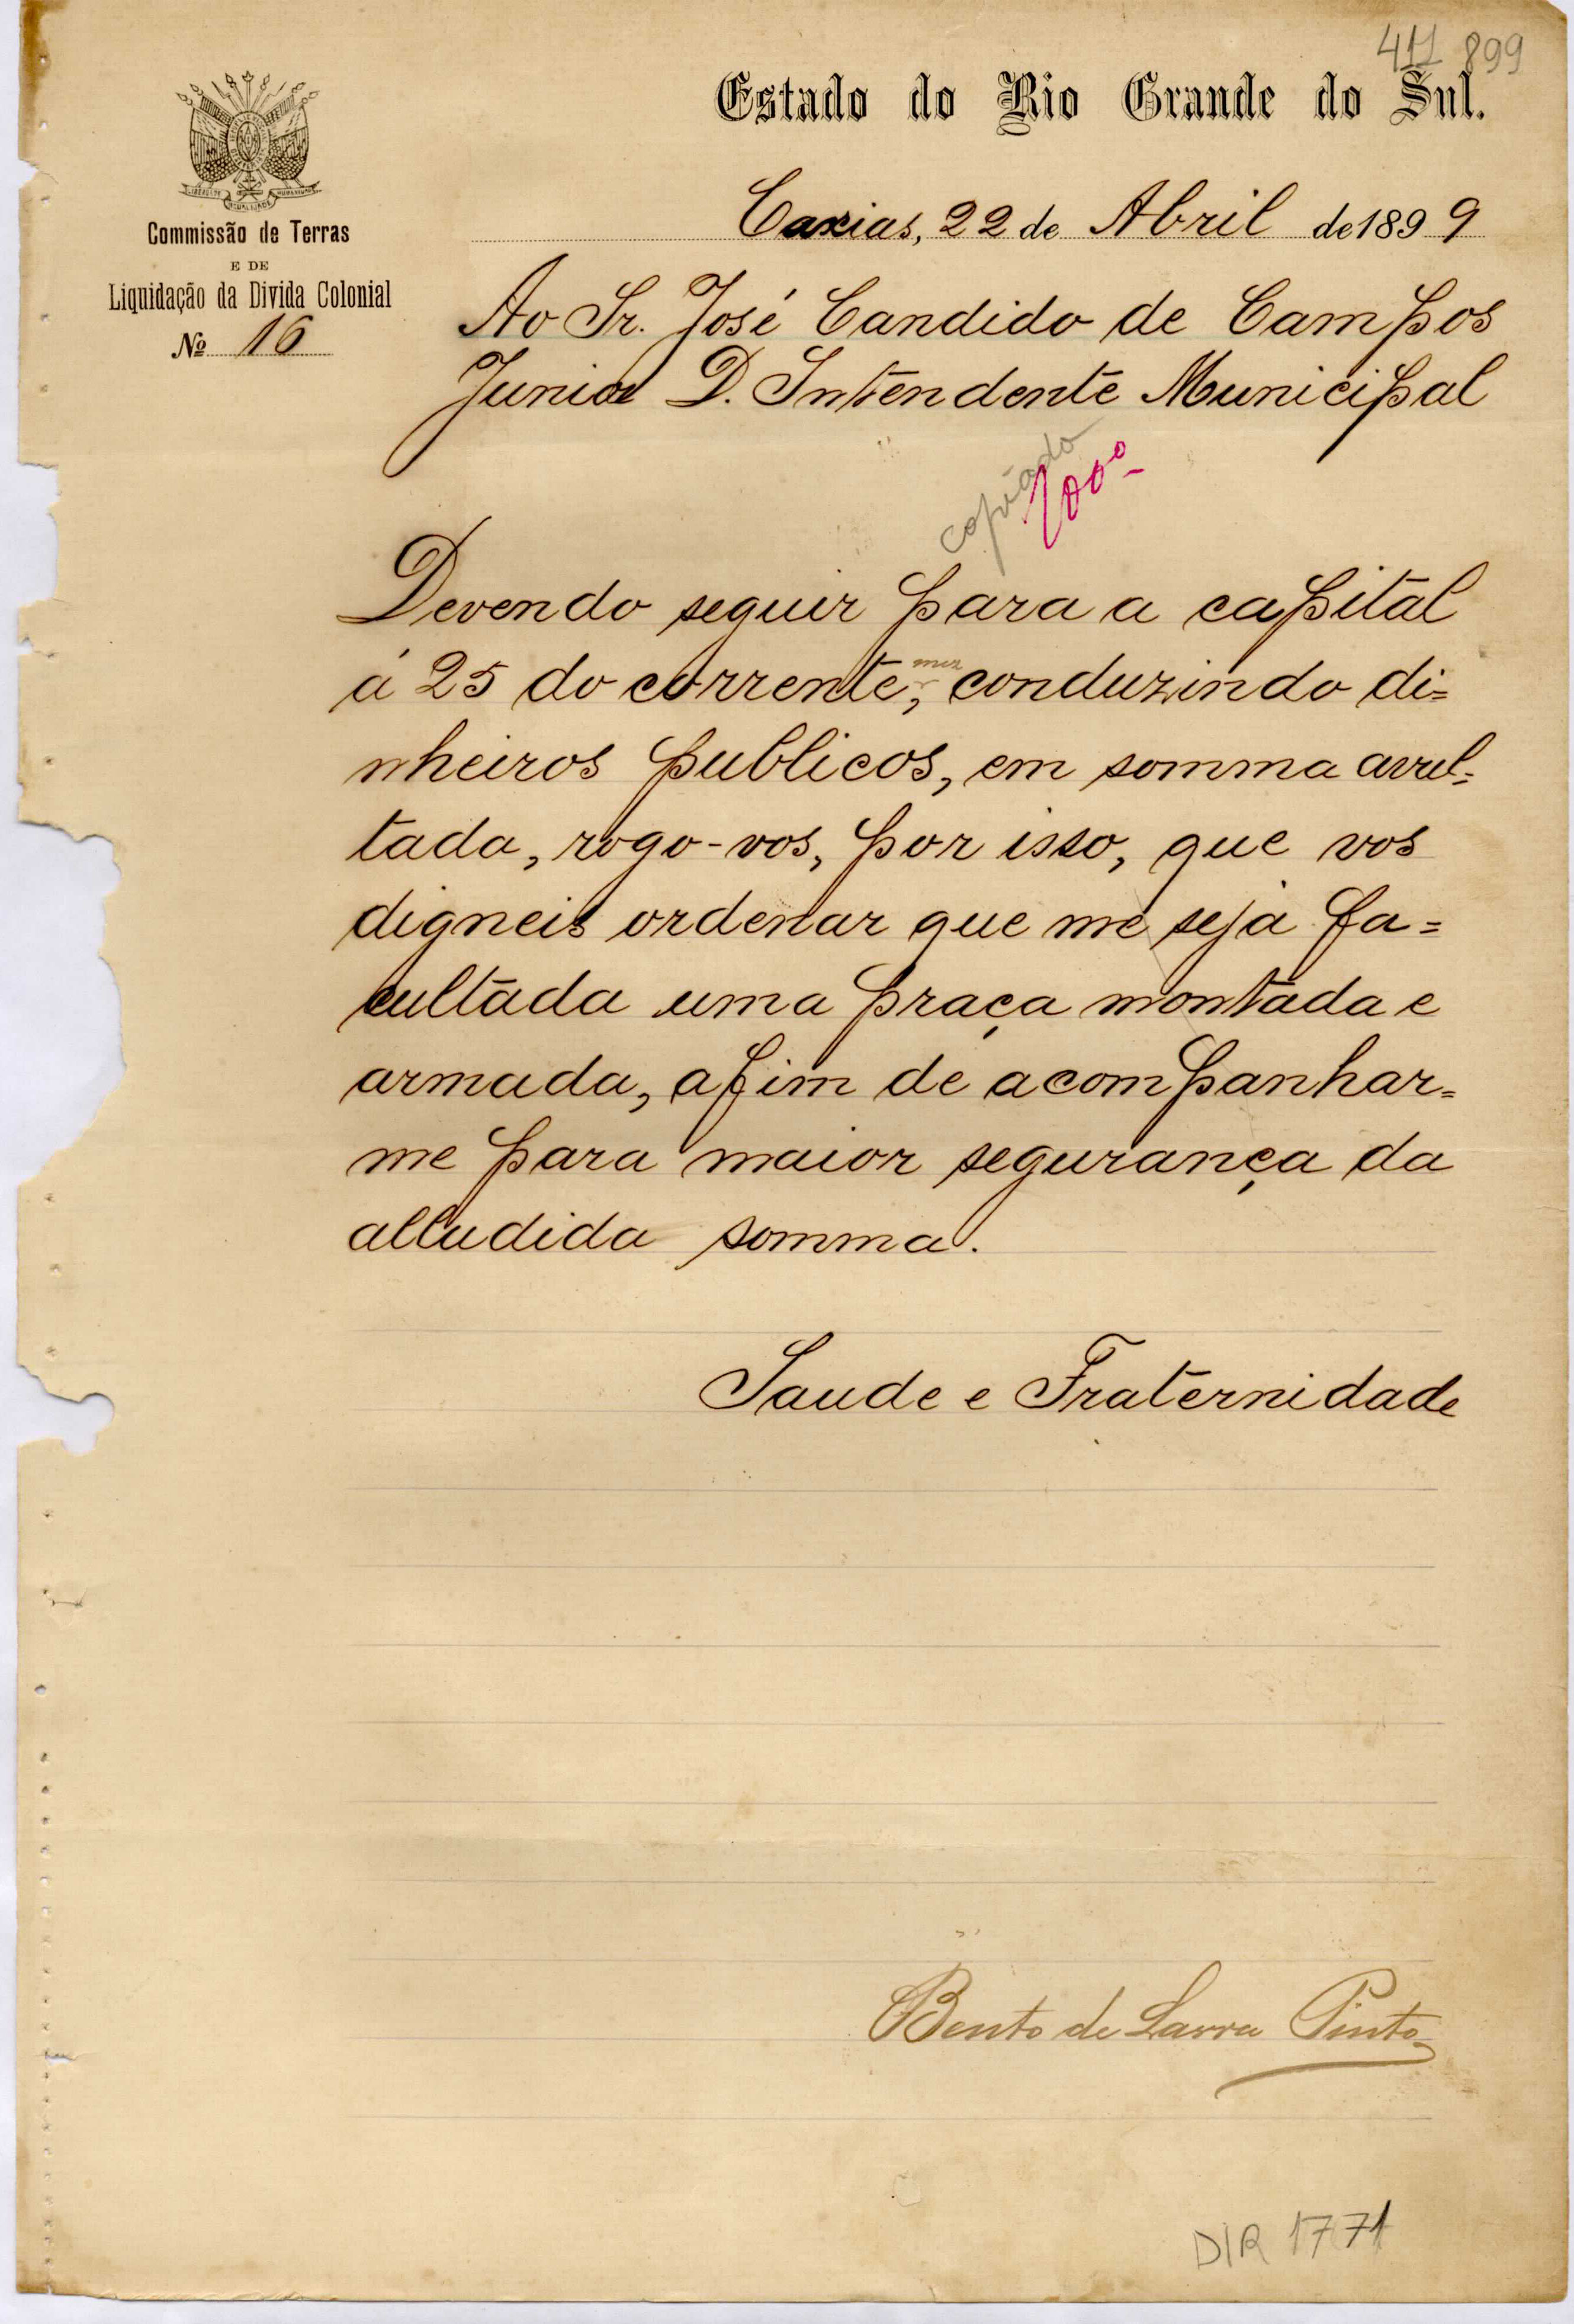 411 899
Estado do Rio Grande do Sul.
LIBERDADE IGUALDADE HUMANIDADE
Commissão de Terras
E DE
Liquidação da Divida Colonial
Nº 16
Caxias, 22 de Abril de 1899
Ao Sr. José Candido de Campos
Junior D. Intendente Municipal
copiado
Devendo seguir para a capital
á 25 do corrente, mez conduzindo di=
nheiros publicos, em somma avul=
tada, rogo-vos, por isso, que vos
digneis ordenar que me seja fa=
cultada uma praça montada e
armada, afim de acompanhar=
me para maior segurança da
alludida somma.
Saude e Fraternidade
Bento de Lavra Pinto
DIR 1771